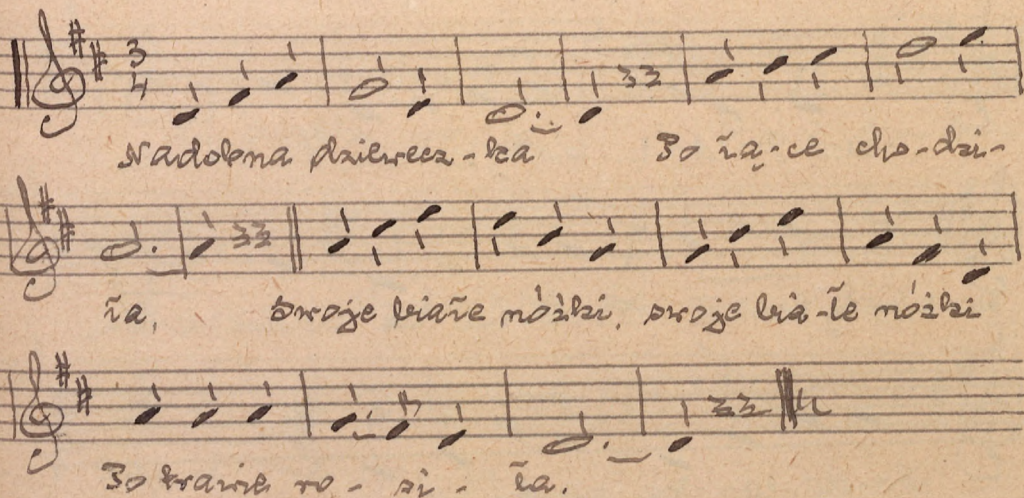 3
4
Nadobna dziewecz-ka Po łą-ce cho-dzi-
ła, Swoje białe nóżki, swoje bia-łe nóżki
Po trawie ro-si-ła.